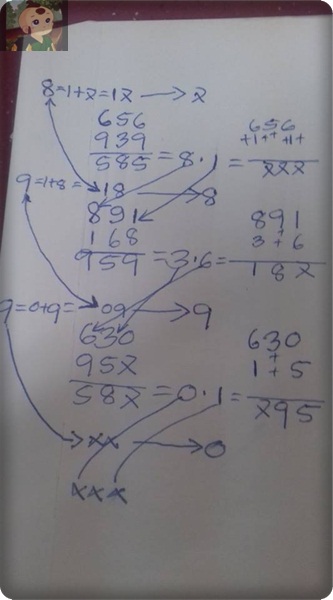 8=1+7=17 → 7
656
939
585 = 8.1 =
656
+1+ + +1+
777
9=1+8= 18 → 8
891
168
959 = 3.6 =
891
3 + 6
187
9=0+9= 09 → 9
630
957
587 = 0.1 =
630
+
1 + 5
795
xx → 0
xxx